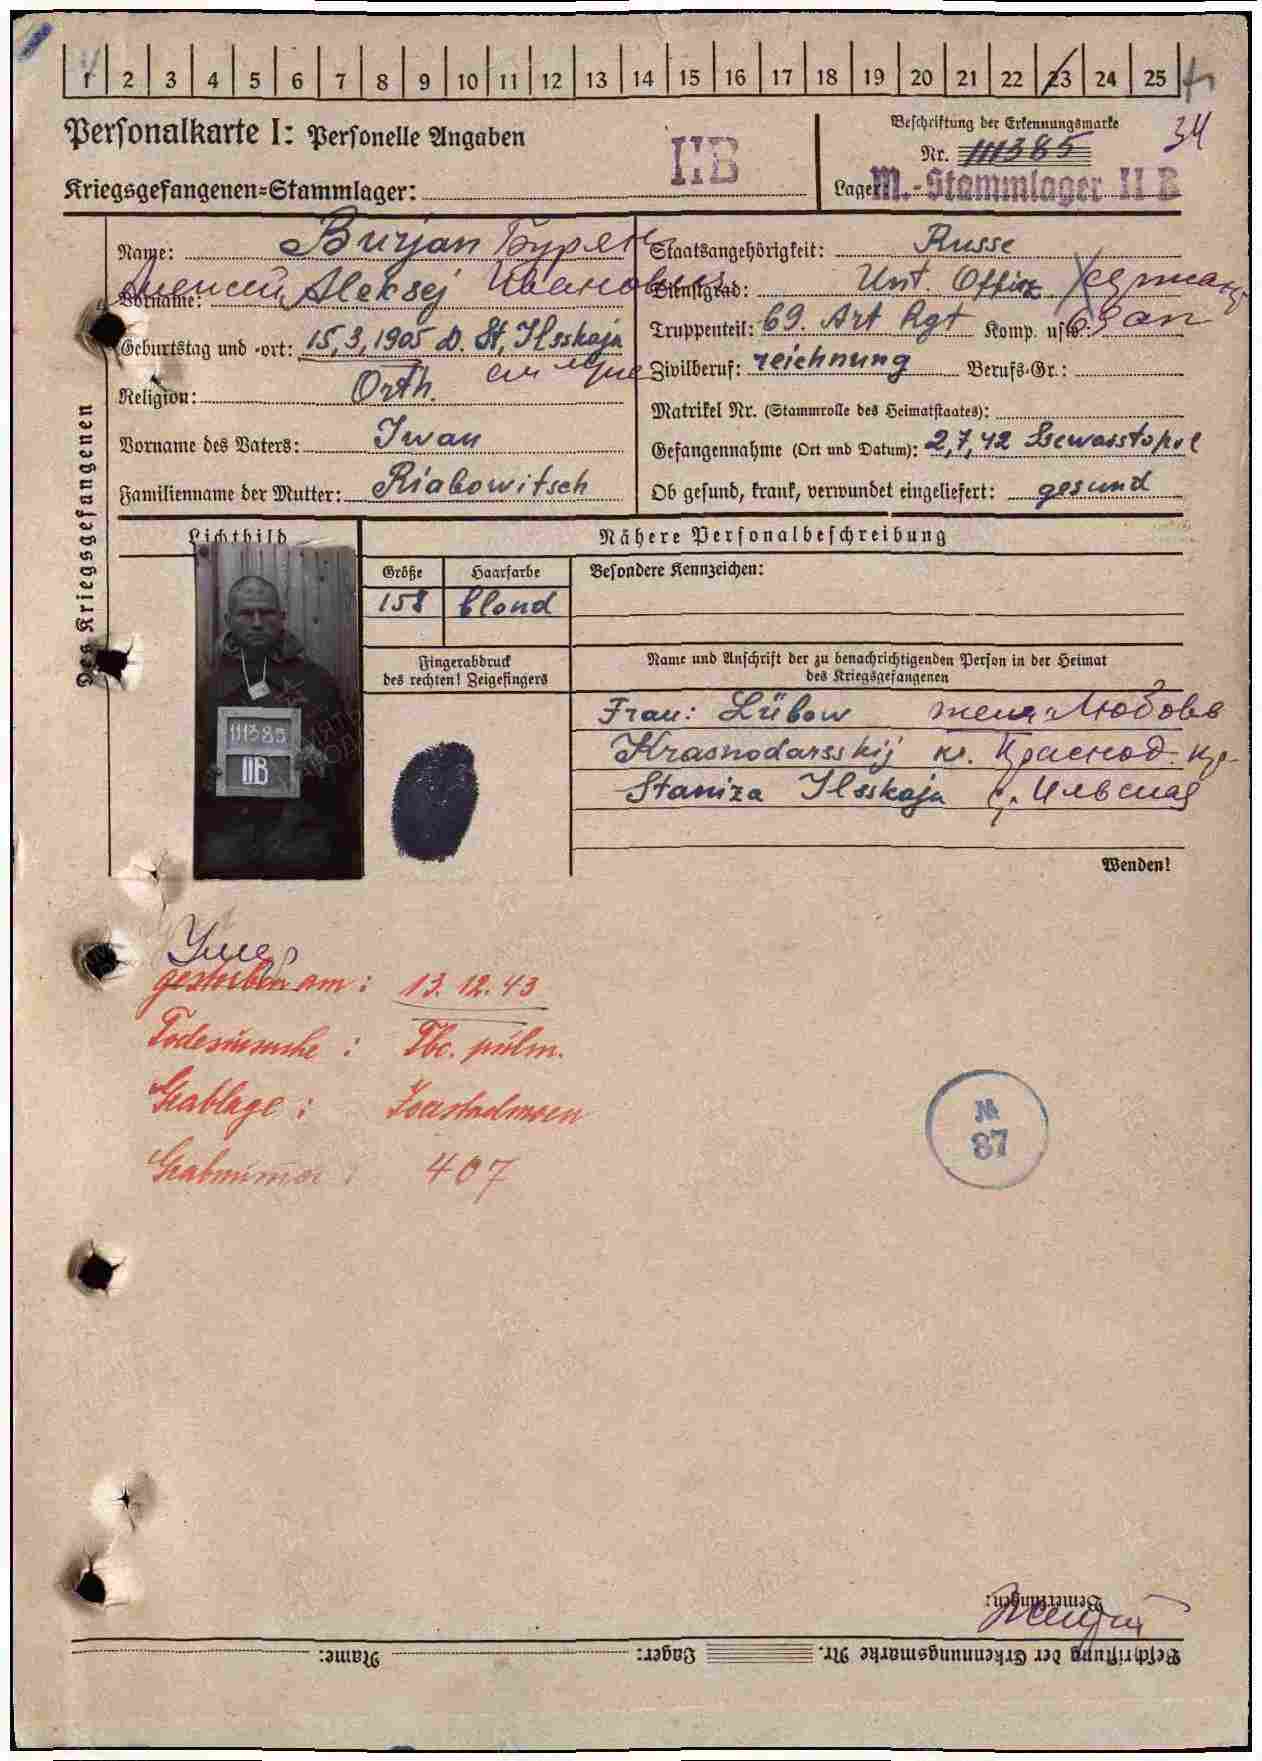 1 2 3 4 5 6 7 8 9 10 11 12 13 14 15 16 17 18 19 20 21 22 23 24 25
Personalkarte I: Personelle Angaben
Kriegsgefangenen-Stammlager: II B
Beschriftung der Erkennungsmarke
34
Nr. 111385
Lager: M.-Stammlager II B
Des Kriegsgefangenen
Name: Burjan Бурян
Vorname: Алексей Aleksej Иванович
Geburtstag und -ort: 15,3,1905 D. St, Ilsskaja
Religion: Orth.
Vorname des Vaters: Iwan
Familienname der Mutter: Riabowitsch
Staatsangehörigkeit: Russe
Dienstgrad: Unt. Offiz сержант
Truppenteil: 69. Art Rgt Komp. usw.: 69 ап
Zivilberuf: reichnung Berufs-Gr.:
Matrikel Nr. (Stammrolle des Heimatstaates):
Gefangennahme (Ort und Datum): 2,7,42 Ssewasstopol
Ob gesund, krank, verwundet eingeliefert: gesund
Lichtbild
111385
IIB
Nähere Personalbeschreibung
Größe Haarfarbe Besondere Kennzeichen:
158 blond
Fingerabdruck
des rechten! Zeigefingers
Name und Anschrift der zu benachrichtigenden Person in der Heimat
des Kriegsgefangenen
Frau: Lübow жена Любовь
Krasnodarsskij кр. Краснод. кр.
Staniza Ilsskaja с. Ильская
Wenden!
Умер
gestorben am: 13.12.43
Todesursache: Tbc. pulm.
Grablage:
Grabnummer: 407
M
87
Bemerkungen:
Beschriftung der Erkennungsmarke Nr. Lager: Name: